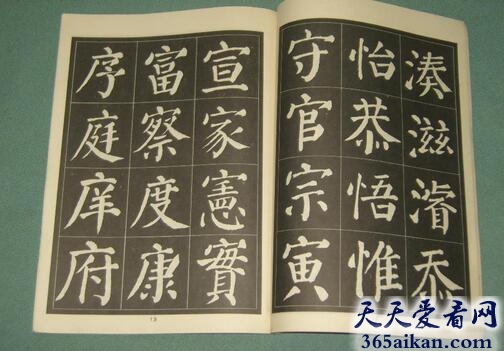 湊滋濬忝
怡恭悟惟
守官宗寅
宣家憲實
富察度康
序庭庠府
13
天天爱看网
365aikan.com